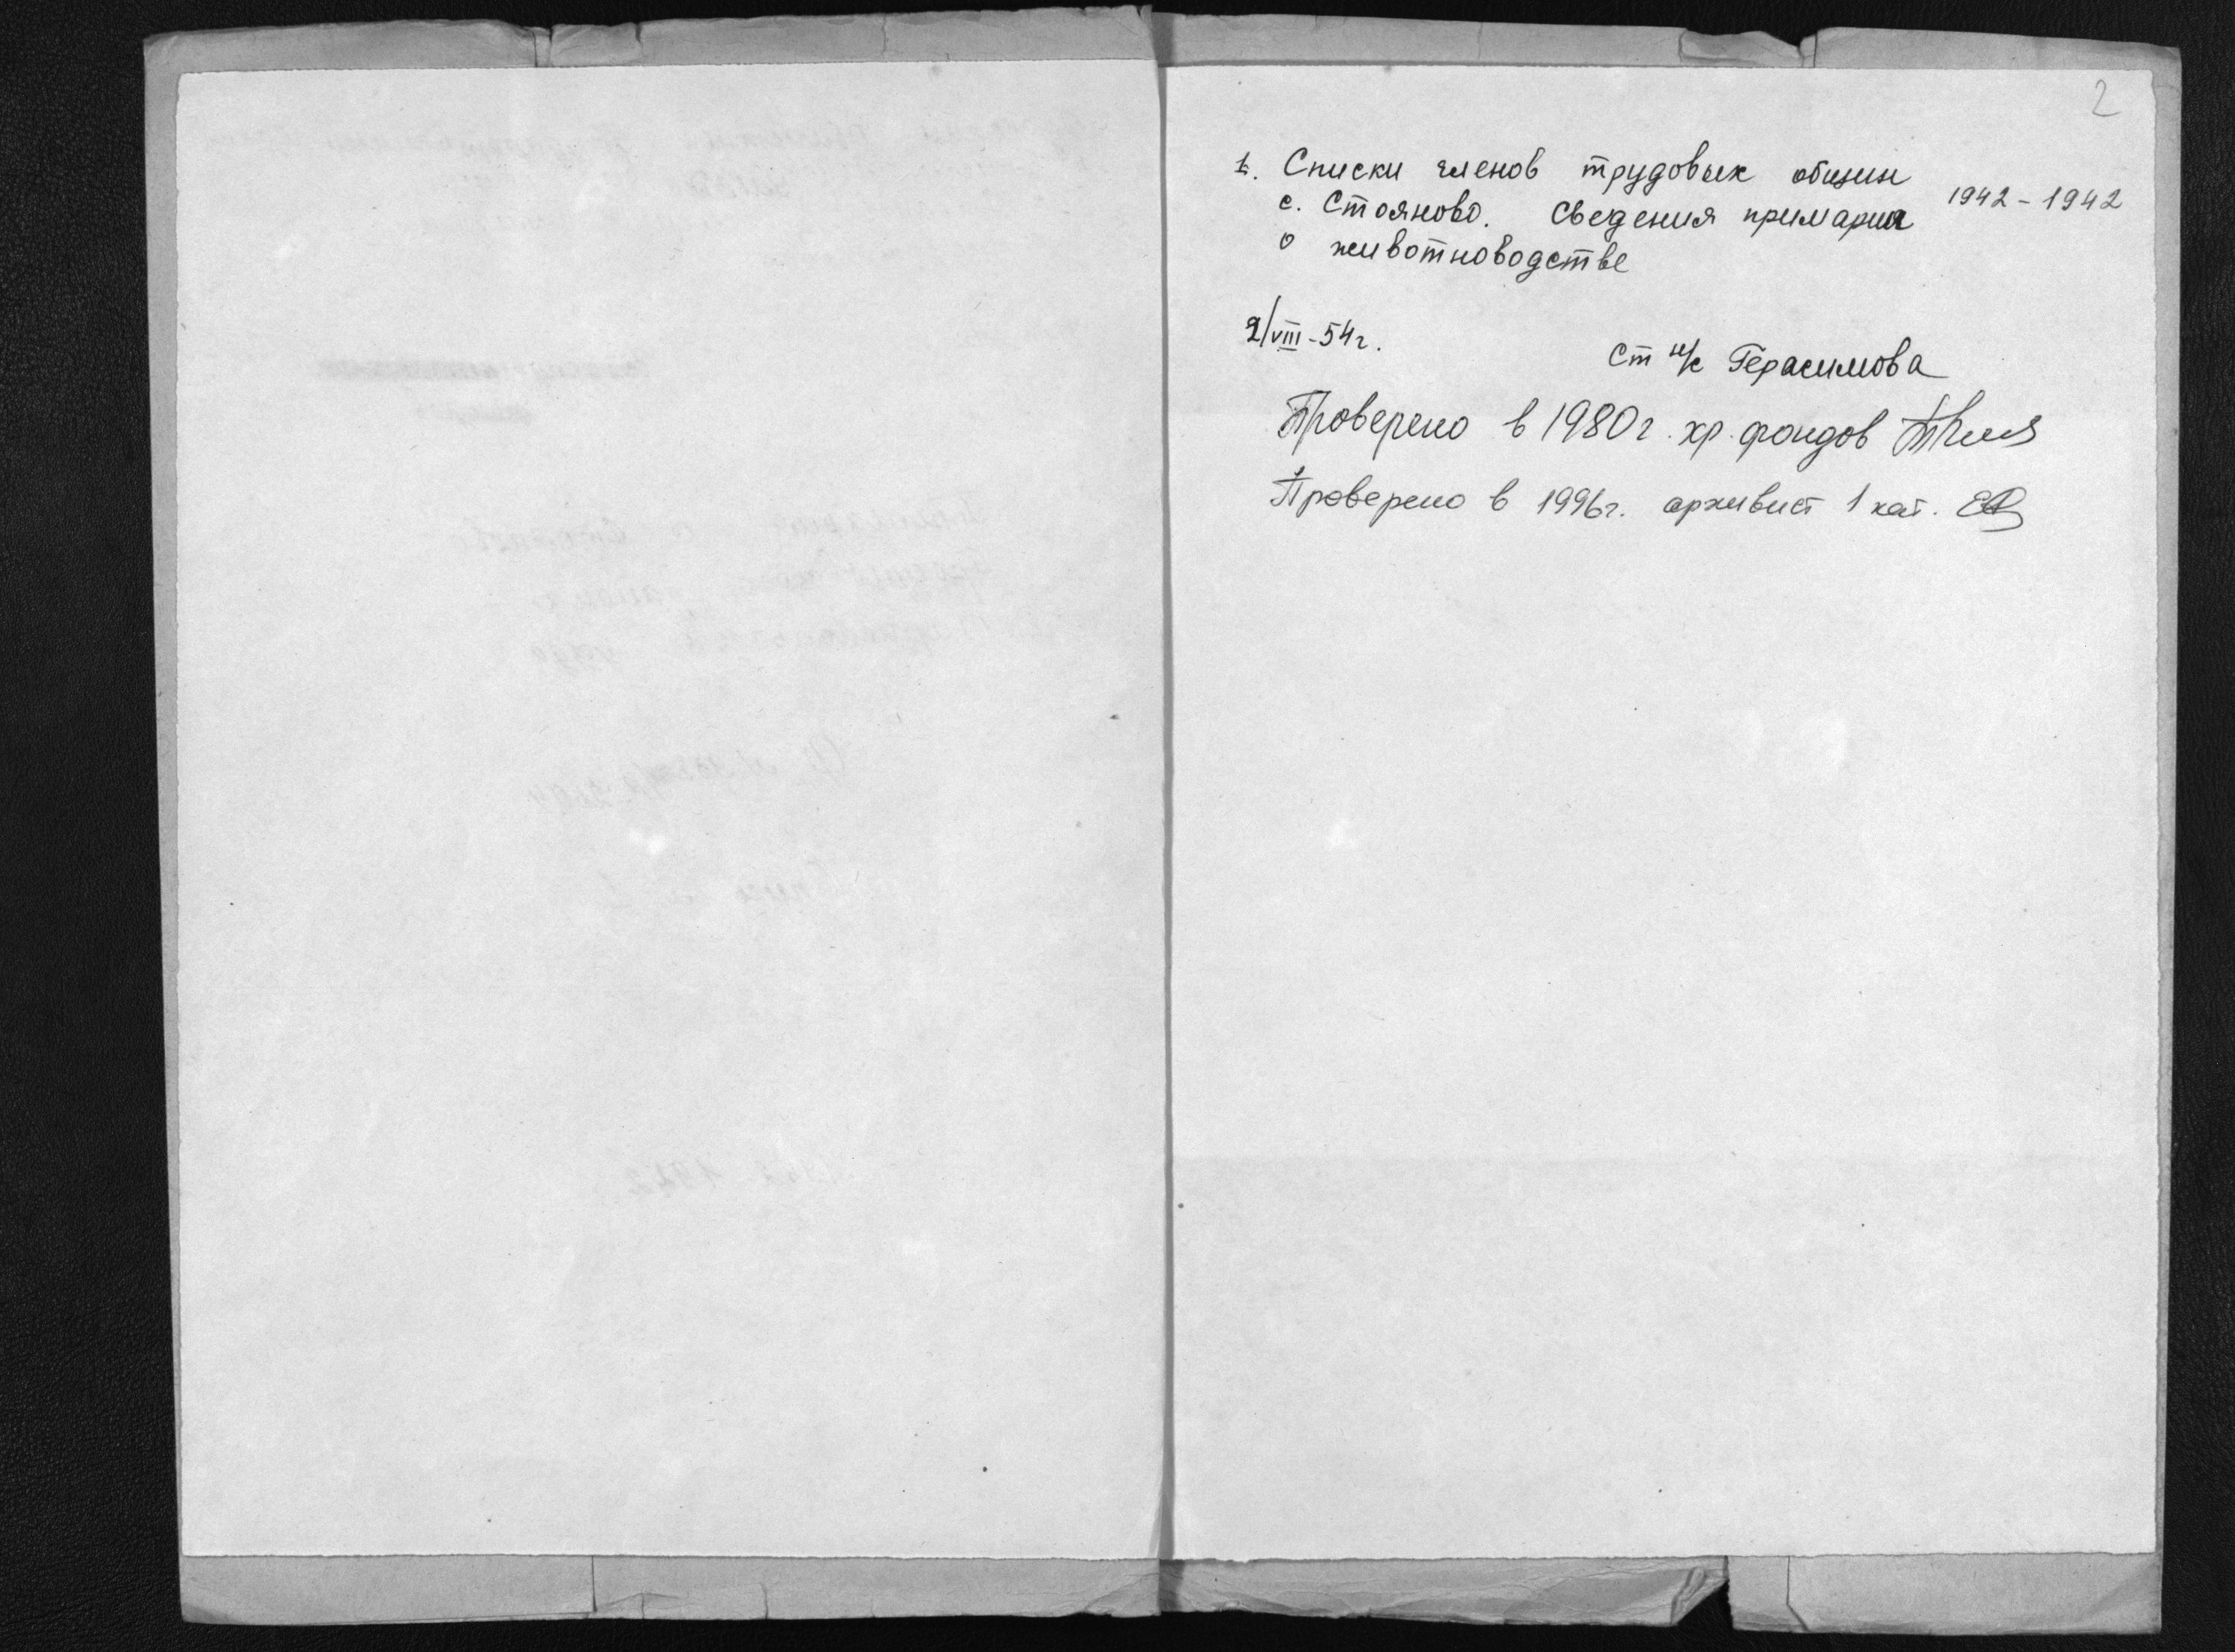 2
1. Списки членов трудовых общин 1942 - 1942
с. Стояново. Сведения примарии
о животноводстве
2/VIII-54г.
Ст н/с Герасимова
Проверено в 1980г. хр. фондов
Проверено в 1996г. архивист 1 кат.